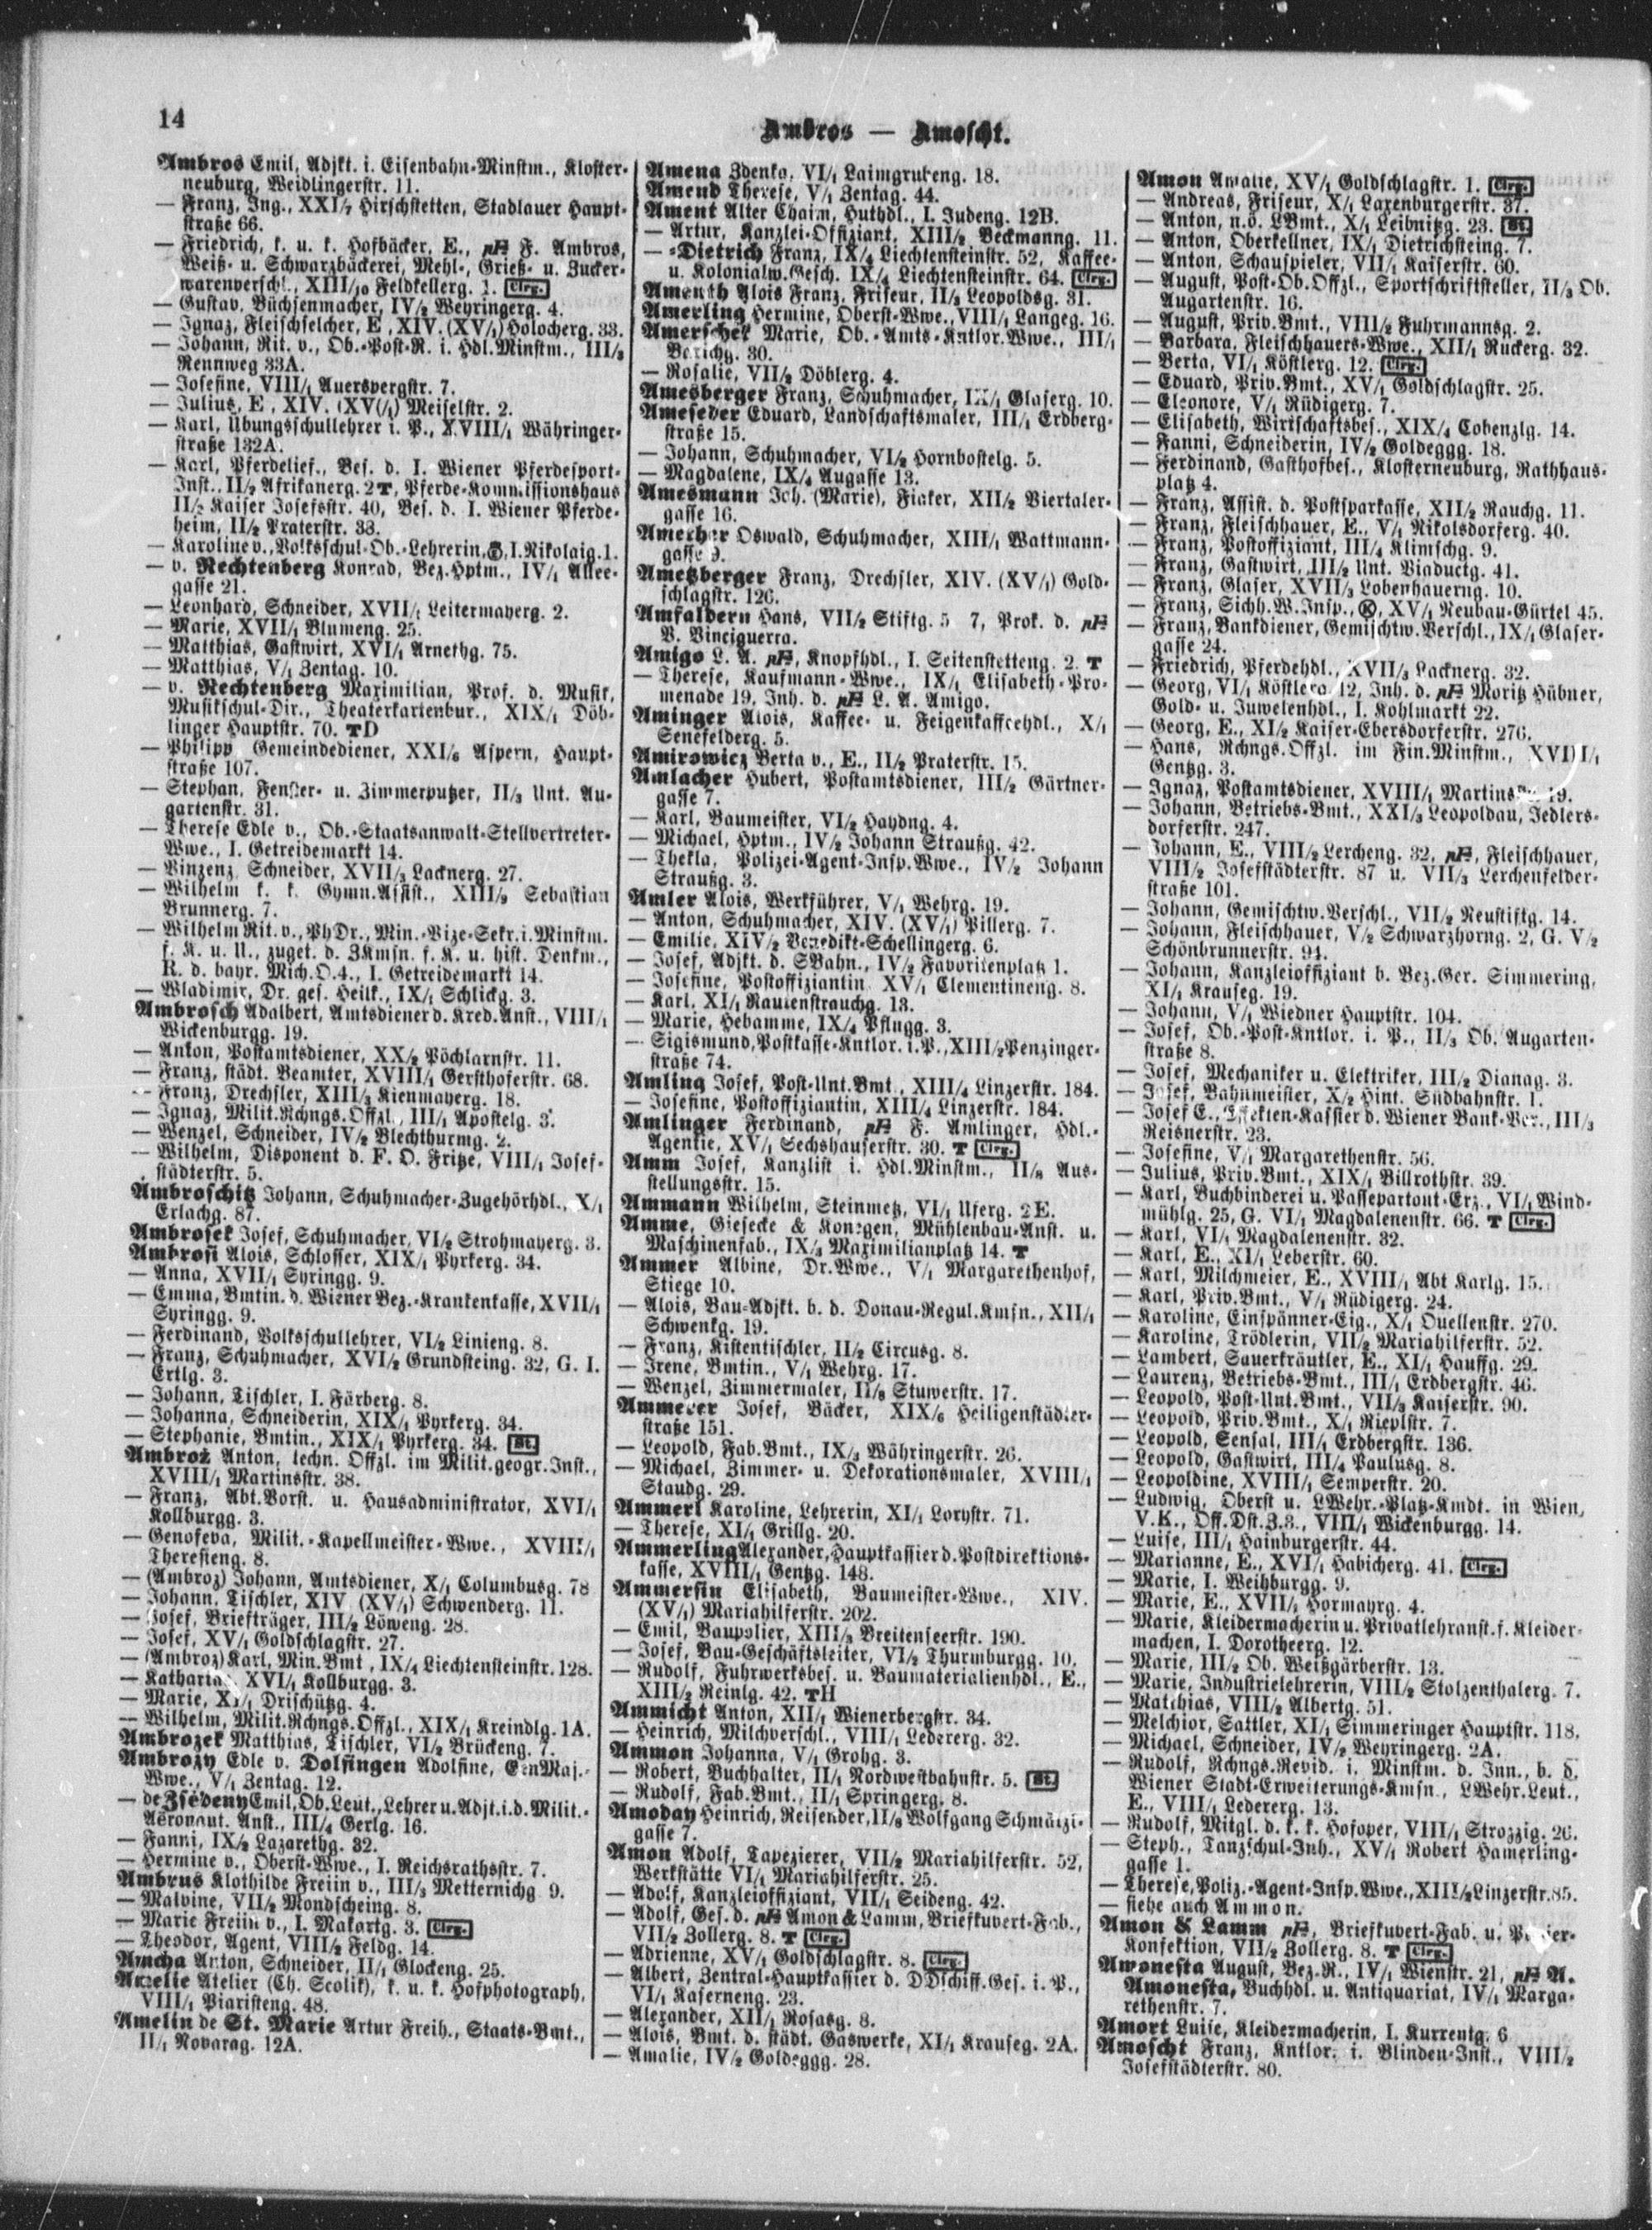 14
Ambros — Amoscht.
Ambros Emil, Adjkt. i. Eisenbahn-Minstm., Kloster-
neuburg, Weidlingerstr. 11.
— Franz, Ing., XXI/7 Hirschstetten, Stadlauer Haupt-
straße 66.
— Friedrich, k. u. k. Hofbäcker, E., F. Ambros,
Weiß- u. Schwarzbäckerei, Mehl-, Grieß- u. Zucker-
warenverschl., XIII/10 Feldkellerg. 1. Clrg.
— Gustav, Büchsenmacher, IV/2 Weyringerg. 4.
— Ignaz, Fleischselcher, E., XIV. (XV/1) Holocherg. 33.
— Johann, Rit. v., Ob.-Post-R. i. Hdl.Minstm., III/3
Rennweg 33A.
— Josefine, VIII/1 Auerspergstr. 7.
— Julius, E., XIV. (XV(/1) Meiselstr. 2.
— Karl, Übungsschullehrer i. P., XVIII/1 Währinger-
straße 132A.
— Karl, Pferdelief., Bes. d. I. Wiener Pferdesport-
Inst., II/2 Afrikanerg. 2 T, Pferde-Kommissionshaus
II/2 Kaiser Josefsstr. 40, Bes. d. I. Wiener Pferde-
heim, II/2 Praterstr. 33.
— Karoline v., Volksschul-Ob.-Lehrerin, I. Nikolaig. 1.
— v. Rechtenberg Konrad, Bez.Hptm., IV/1 Allee-
gasse 21.
— Leonhard, Schneider, XVII/1 Leitermayerg. 2.
— Marie, XVII/1 Blumeng. 25.
— Matthias, Gastwirt, XVI/1 Arnethg. 75.
— Matthias, V/1 Zentag. 10.
— v. Rechtenberg Maximilian, Prof. d. Musik,
Musikschul-Dir., Theaterkartenbur., XIX/1 Döb-
linger Hauptstr. 70. TD
— Philipp, Gemeindediener, XXI/6 Aspern, Haupt-
straße 107.
— Stephan, Fenster- u. Zimmerputzer, II/3 Unt. Au-
gartenstr. 31.
— Therese Edle v., Ob.-Staatsanwalt-Stellvertreter-
Wwe., I. Getreidemarkt 14.
— Vinzenz, Schneider, XVII/3 Lacknerg. 27.
— Wilhelm k. k. Gymn.Assist., XIII/9 Sebastian
Brunnerg. 7.
— Wilhelm Rit. v., PhDr., Min.-Vize-Sekr. i. Minstm.
f. K. u. U., zuget. d. ZKmsn. f. K. u. hist. Denkm.,
R. d. bayr. Mich.O.4., I. Getreidemarkt 14.
— Wladimir, Dr. ges. Heilk., IX/1 Schlickg. 3.
Ambrosch Adalbert, Amtsdiener d. Kred.Anst., VIII/1
Wickenburgg. 19.
— Anton, Postamtsdiener, XX/2 Pöchlarnstr. 11.
— Franz, städt. Beamter, XVIII/1 Gersthoferstr. 68.
— Franz, Drechsler, XIII/3 Kienmayerg. 18.
— Ignaz, Milit.Rchngs.Offzl., III/1 Apostelg. 3.
— Wenzel, Schneider, IV/2 Blechthurmg. 2.
— Wilhelm, Disponent d. F. O. Fritze, VIII/1 Josef-
städterstr. 5.
Ambroschitz Johann, Schuhmacher-Zugehörhdl., X/1
Erlachg. 87.
Ambrosek Josef, Schuhmacher, VI/2 Strohmayerg. 3.
Ambrosi Alois, Schlosser, XIX/1 Pyrkerg. 34.
— Anna, XVII/1 Syringg. 9.
— Emma, Bmtin. d. Wiener Bez.-Krankenkasse, XVII/1
Syringg. 9.
— Ferdinand, Volksschullehrer, VI/2 Linieng. 8.
— Franz, Schuhmacher, XVI/2 Grundsteing. 32, G. I.
Ertlg. 3.
— Johann, Tischler, I. Färberg. 8.
— Johanna, Schneiderin, XIX/1 Pyrkerg. 34.
— Stephanie, Bmtin., XIX/1 Pyrkerg. 34. St.
Ambrož Anton, techn. Offzl. im Milit.geogr.Inst.,
XVIII/1 Martinsstr. 38.
— Franz, Abt.Vorst. u. Hausadministrator, XVI/1
Kollburgg. 3.
— Genofeva, Milit.-Kapellmeister-Wwe., XVIII/1
Theresieng. 8.
— (Ambroz) Johann, Amtsdiener, X/1 Columbusg. 78
— Johann, Tischler, XIV (XV/1) Schwenderg. 11.
— Josef, Briefträger, III/2 Löweng. 28.
— Josef, XV/1 Goldschlagstr. 27.
— (Ambroz) Karl, Min.Bmt, IX/4 Liechtensteinstr. 128.
— Katharina, XVI/1 Kollburgg. 3.
— Marie, XI/1 Drischützg. 4.
— Wilhelm, Milit.Rchngs.Offzl., XIX/1 Kreindlg. 1A.
Ambrozek Matthias, Tischler, VI/2 Brückeng. 7.
Ambrozy Edle v. Dolfingen Adolfine, GenMaj.-
Wwe., V/1 Zentag. 12.
— de Zsédeny Emil, Ob.Leut., Lehrer u. Adjt. i. d. Milit.-
Aëronaut. Anst., III/4 Gerlg. 16.
— Fanni, IX/2 Lazarethg. 32.
— Hermine v., Oberst-Wwe., I. Reichsrathsstr. 7.
Ambrus Klothilde Freiin v., III/3 Metternichg 9.
— Malvine, VII/2 Mondscheing. 8.
— Marie Freiin v., I. Makartg. 3. Clrg.
— Theodor, Agent, VIII/2 Feldg. 14.
Amcha Anton, Schneider, II/1 Glockeng. 25.
Amelie Atelier (Ch. Scolik), k. u. k. Hofphotograph,
VIII/1 Piaristeng. 48.
Amelin de St. Marie Artur Freih., Staats-Bmt.,
II/1 Novarag. 12A.
Amena Zdenka, VI/1 Laimgrubeng. 18.
Amend Therese, V/1 Zentag. 44.
Ament Alter Chaim, Huthdl., I. Judeng. 12B.
— Artur, Kanzlei-Offiziant, XIII/2 Beckmanng. 11.
— -Dietrich Franz, IX/4 Liechtensteinstr. 52, Kaffee-
u. Kolonialw.Gesch. IX/4 Liechtensteinstr. 64. Clrg.
Amenth Alois Franz, Friseur, II/3 Leopoldsg. 31.
Amerling Hermine, Oberst-Wwe., VIII/1 Langeg. 16.
Amerschek Marie, Ob.-Amts-Kntlor.Wwe., III/1
30.
— Rosalie, VII/2 Döblerg. 4.
Amesberger Franz, Schuhmacher, IX/1 Glaserg. 10.
Ameseder Eduard, Landschaftsmaler, III/1 Erdberg-
straße 15.
— Johann, Schuhmacher, VI/2 Hornbostelg. 5.
— Magdalene, IX/4 Augasse 13.
Amesmann Joh. (Marie), Fiaker, XII/2 Viertaler-
gasse 16.
Oswald, Schuhmacher, XIII/1 Wattmann-
gasse 9.
Ametzberger Franz, Drechsler, XIV. (XV/1) Gold-
schlagstr. 126.
Amfaldern Hans, VII/2 Stiftg. 5 7, Prok. d.
V. Vinciguerra.
Amigo L. A., Knopfhdl., I. Seitenstetteng. 2. T
— Therese, Kaufmann-Wwe., IX/1 Elisabeth-Pro-
menade 19, Inh. d. L. A. Amigo.
Aminger Alois, Kaffee- u. Feigenkaffeehdl., X/1
Senefelderg. 5.
Amirowicz Berta v., E., II/2 Praterstr. 15.
Amlacher Hubert, Postamtsdiener, III/2 Gärtner-
gasse 7.
— Karl, Baumeister, VI/2 Haydng. 4.
— Michael, Hptm., IV/2 Johann Straußg. 42.
— Thekla, Polizei-Agent-Insp.Wwe., IV/2 Johann
Straußg. 3.
Amler Alois, Werkführer, V/1 Wehrg. 19.
— Anton, Schuhmacher, XIV. (XV/1) Pillerg. 7.
— Emilie, XIV/2 Benedikt-Schellingerg. 6.
— Josef, Adjkt. d. SBahn., IV/2 Favoritenplatz 1.
— Josefine, Postoffiziantin XV/1 Clementineng. 8.
— Karl, XI/1 Rautenstrauchg. 13.
— Marie, Hebamme, IX/4 Pflugg. 3.
— Sigismund, Postkasse-Kntlor. i. P., XIII/2 Penzinger-
straße 74.
Amling Josef, Post-Unt.Bmt., XIII/4 Linzerstr. 184.
— Josefine, Postoffiziantin, XIII/4 Linzerstr. 184.
Amlinger Ferdinand, F. Amlinger, Hdl.-
Agentie, XV/1 Sechshauserstr. 30. T Clrg.
Amm Josef, Kanzlist i. Hdl.Minstm., II/8 Aus-
stellungsstr. 15.
Ammann Wilhelm, Steinmetz, VI/1 Uferg. 2E.
Amme, Giesecke & Konegen, Mühlenbau-Anst. u.
Maschinenfab., IX/3 Maximilianplatz 14. T
Ammer Albine, Dr.Wwe., V/1 Margarethenhof,
Stiege 10.
— Alois, Bau-Adjkt. b. d. Donau-Regul.Kmsn., XII/1
Schwenkg. 19.
— Franz, Kistentischler, II/2 Circusg. 8.
— Irene, Bmtin., V/1 Wehrg. 17.
— Wenzel, Zimmermaler, II/8 Stuwerstr. 17.
Ammerer Josef, Bäcker, XIX/6 Heiligenstädter-
straße 151.
— Leopold, Fab.Bmt., IX/3 Währingerstr. 26.
— Michael, Zimmer- u. Dekorationsmaler, XVIII/1
Staudg. 29.
Ammerl Karoline, Lehrerin, XI/1 Lorystr. 71.
— Therese, XI/1 Grillg. 20.
Ammerling Alexander, Hauptkassier d. Postdirektions-
kasse, XVIII/1 Gentzg. 148.
Ammersin Elisabeth, Baumeister-Wwe., XIV.
(XV/1) Mariahilferstr. 202.
— Emil, Baupolier, XIII/3 Breitenseerstr. 190.
— Josef, Bau-Geschäftsleiter, VI/2 Thurmburgg. 10.
— Rudolf, Fuhrwerksbes. u. Baumaterialienhdl., E.,
XIII/2 Reinlg. 42. TH
Ammicht Anton, XII/1 Wienerbergstr. 34.
— Heinrich, Milchverschl., VIII/1 Ledererg. 32.
Ammon Johanna, V/1 Grohg. 3.
— Robert, Buchhalter, II/1 Nordwestbahnstr. 5. St.
— Rudolf, Fab.Bmt., II/1 Springerg. 8.
Amoday Heinrich, Reisender, II/8 Wolfgang Schmälzl-
gasse 7.
Amon Adolf, Tapezierer, VII/2 Mariahilferstr. 52,
Werkstätte VI/1 Mariahilferstr. 25.
— Adolf, Kanzleioffiziant, VII/1 Seideng. 42.
— Adolf, Ges. d. Amon & Lamm, Briefkuvert-Fab.,
VII/2 Zollerg. 8. T Clrg.
— Adrienne, XV/1 Goldschlagstr. 8. Clrg.
— Albert, Zentral-Hauptkassier d. DDschiff.Ges. i. P.,
VI/1 Kaserneng. 23.
— Alexander, XII/1 Rosasg. 8.
— Alois, Bmt. d. städt. Gaswerke, XI/1 Krauseg. 2A.
— Amalie, IV/2 Goldeggg. 28.
Amon Amalie, XV/1 Goldschlagstr. 1. Clrg.
— Andreas, Friseur, X/1 Laxenburgerstr. 37.
— Anton, n.ö. LBmt., X/1 Leibnitzg. 23. St.
— Anton, Oberkellner, IX/1 Dietrichsteing. 7.
— Anton, Schauspieler, VII/1 Kaiserstr. 60.
— August, Post-Ob.Offzl., Sportschriftsteller, II/3 Ob.
Augartenstr. 16.
— August, Priv.Bmt., VIII/2 Fuhrmannsg. 2.
— Barbara, Fleischhauers-Wwe., XII/1 Ruckerg. 32.
— Berta, VI/1 Köstlerg. 12. Clrg.
— Eduard, Priv.Bmt., XV/1 Goldschlagstr. 25.
— Eleonore, V/1 Rüdigerg. 7.
— Elisabeth, Wirtschaftsbes., XIX/4 Cobenzlg. 14.
— Fanni, Schneiderin, IV/2 Goldeggg. 18.
— Ferdinand, Gasthofbes., Klosterneuburg, Rathhaus-
platz 4.
— Franz, Assist. d. Postsparkasse, XII/2 Rauchg. 11.
— Franz, Fleischhauer, E., V/1 Nikolsdorferg. 40.
— Franz, Postoffiziant, III/4 Klimschg. 9.
— Franz, Gastwirt, III/2 Unt. Viaductg. 41.
— Franz, Glaser, XVII/3 Lobenhauerng. 10.
— Franz, Sichh.W.Insp., K, XV/1 Neubau-Gürtel 45.
— Franz, Bankdiener, Gemischtw.Verschl., IX/1 Glaser-
gasse 24.
— Friedrich, Pferdehdl., XVII/3 Lacknerg. 32.
— Georg, VI/1 Köstlerg. 12, Inh. d. Moritz Hübner,
Gold- u. Juwelenhdl., I. Kohlmarkt 22.
— Georg, E., XI/2 Kaiser-Ebersdorferstr. 276.
— Hans, Rchngs.Offzl. im Fin.Minstm., XVIII/1
Gentzg. 3.
— Ignaz, Postamtsdiener, XVIII/1 19.
— Johann, Betriebs-Bmt., XXI/3 Leopoldau, Jedlers-
dorferstr. 247.
— Johann, E., VIII/2 Lercheng. 32, Fleischhauer,
VIII/2 Josefstädterstr. 87 u. VII/3 Lerchenfelder-
straße 101.
— Johann, Gemischtw.Verschl., VII/2 Neustiftg. 14.
— Johann, Fleischhauer, V/2 Schwarzhorng. 2, G. V/2
Schönbrunnerstr. 94.
— Johann, Kanzleioffiziant b. Bez.Ger. Simmering,
XI/1 Krauseg. 19.
— Johann, V/1 Wiedner Hauptstr. 104.
— Josef, Ob.-Post-Kntlor. i. P., II/3 Ob. Augarten-
straße 8.
— Josef, Mechaniker u. Elektriker, III/2 Dianag. 3.
— Josef, Bahnmeister, X/2 Hint. Südbahnstr. 1.
— Josef E., Effekten-Kassier d. Wiener Bank-Ver., III/3
Reisnerstr. 23.
— Josefine, V/1 Margarethenstr. 56.
— Julius, Priv.Bmt., XIX/1 Billrothstr. 39.
— Karl, Buchbinderei u. Passepartout-Erz., VI/1 Wind-
mühlg. 25, G. VI/1 Magdalenenstr. 66. T Clrg.
— Karl, VI/1 Magdalenenstr. 32.
— Karl, E., XI/1 Leberstr. 60.
— Karl, Milchmeier, E., XVIII/1 Abt Karlg. 15.
— Karl, Priv.Bmt., V/1 Rüdigerg. 24.
— Karoline, Einspänner-Eig., X/1 Quellenstr. 270.
— Karoline, Trödlerin, VII/2 Mariahilferstr. 52.
— Lambert, Sauerkräutler, E., XI/1 Hauffg. 29.
— Laurenz, Betriebs-Bmt., III/1 Erdbergstr. 46.
— Leopold, Post-Unt.Bmt., VII/3 Kaiserstr. 90.
— Leopold, Priv.Bmt., X/1 Rieplstr. 7.
— Leopold, Sensal, III/1 Erdbergstr. 136.
— Leopold, Gastwirt, III/4 Paulusg. 8.
— Leopoldine, XVIII/1 Semperstr. 20.
— Ludwig, Oberst u. LWehr.-Platz-Kmdt. in Wien,
V.K., Off.Dst.Z.3., VIII/1 Wickenburgg. 14.
— Luise, III/1 Hainburgerstr. 44.
— Marianne, E., XVI/1 Habicherg. 41. Clrg.
— Marie, I. Weihburgg. 9.
— Marie, E., XVII/1 Hormayrg. 4.
— Marie, Kleidermacherin u. Privatlehranst. f. Kleider-
machen, I. Dorotheerg. 12.
— Marie, III/2 Ob. Weißgärberstr. 13.
— Marie, Industrielehrerin, VIII/2 Stolzenthalerg. 7.
— Matthias, VIII/2 Albertg. 51.
— Melchior, Sattler, XI/1 Simmeringer Hauptstr. 118.
— Michael, Schneider, IV/2 Weyringerg. 2A.
— Rudolf, Rchngs.Revid. i. Minstm. d. Inn., b. d.
Wiener Stadt-Erweiterungs-Kmsn., LWehr.Leut.,
E., VIII/1 Ledererg. 13.
— Rudolf, Mitgl. d. k. k. Hofoper, VIII/1 Strozzig. 26.
— Steph., Tanzschul-Inh., XV/1 Robert Hamerling-
gasse 1.
— Therese, Poliz.-Agent-Insp.Wwe., XIII/2 Linzerstr. 85.
— siehe auch Ammon.
Amon & Lamm, Briefkuvert-Fab. u. Papier-
Konfektion, VII/2 Zollerg. 8. T Clrg.
Amonesta August, Bez.R., IV/1 Wienstr. 21, A.
Amonesta, Buchhdl. u. Antiquariat, IV/1 Marga-
rethenstr. 7.
Amort Luise, Kleidermacherin, I. Kurrentg. 6
Amoscht Franz, Kntlor. i. Blinden-Inst., VIII/2
Josefstädterstr. 80.